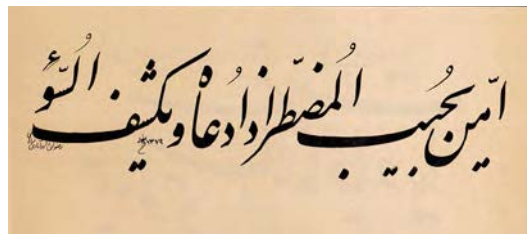 امّن یجُیب المُضطرّ اذا دُعاه و یکشف السُّوُء
۱۳۷۹